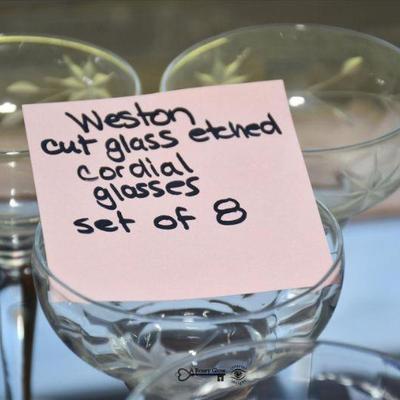 Weston
cut glass etched
cordial
glasses
set of 8